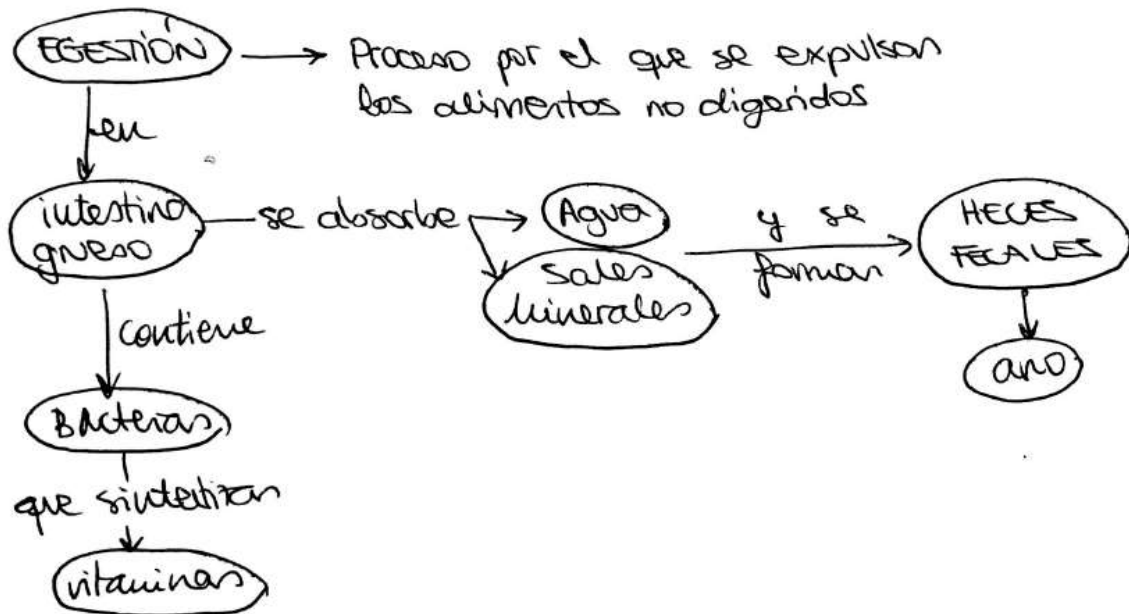 EGESTIÓN
Proceso por el que se expulsan
los alimentos no digeridos
en
intestino
grueso
se absorbe
Agua
Sales
Minerales
y se
forman
HECES
FECALES
ano
contiene
BActerias
que sintetizan
vitaminas